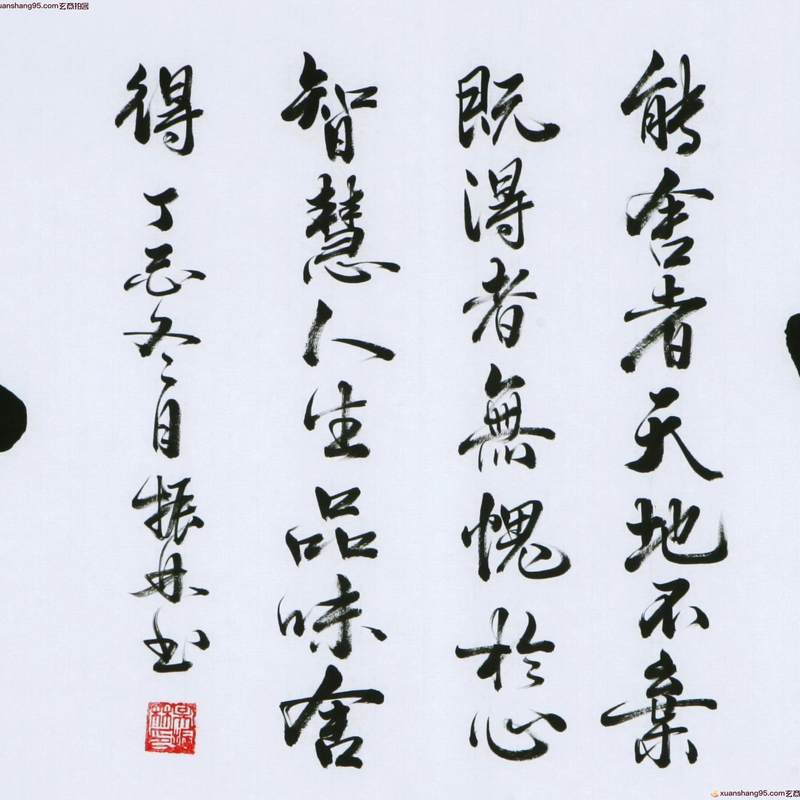 uanshang95.com玄商拍客
能舍者天地不棄
既得者無愧於心
智慧人生品味舍
得 丁亥冬月振林书
xuanshang95.com玄商